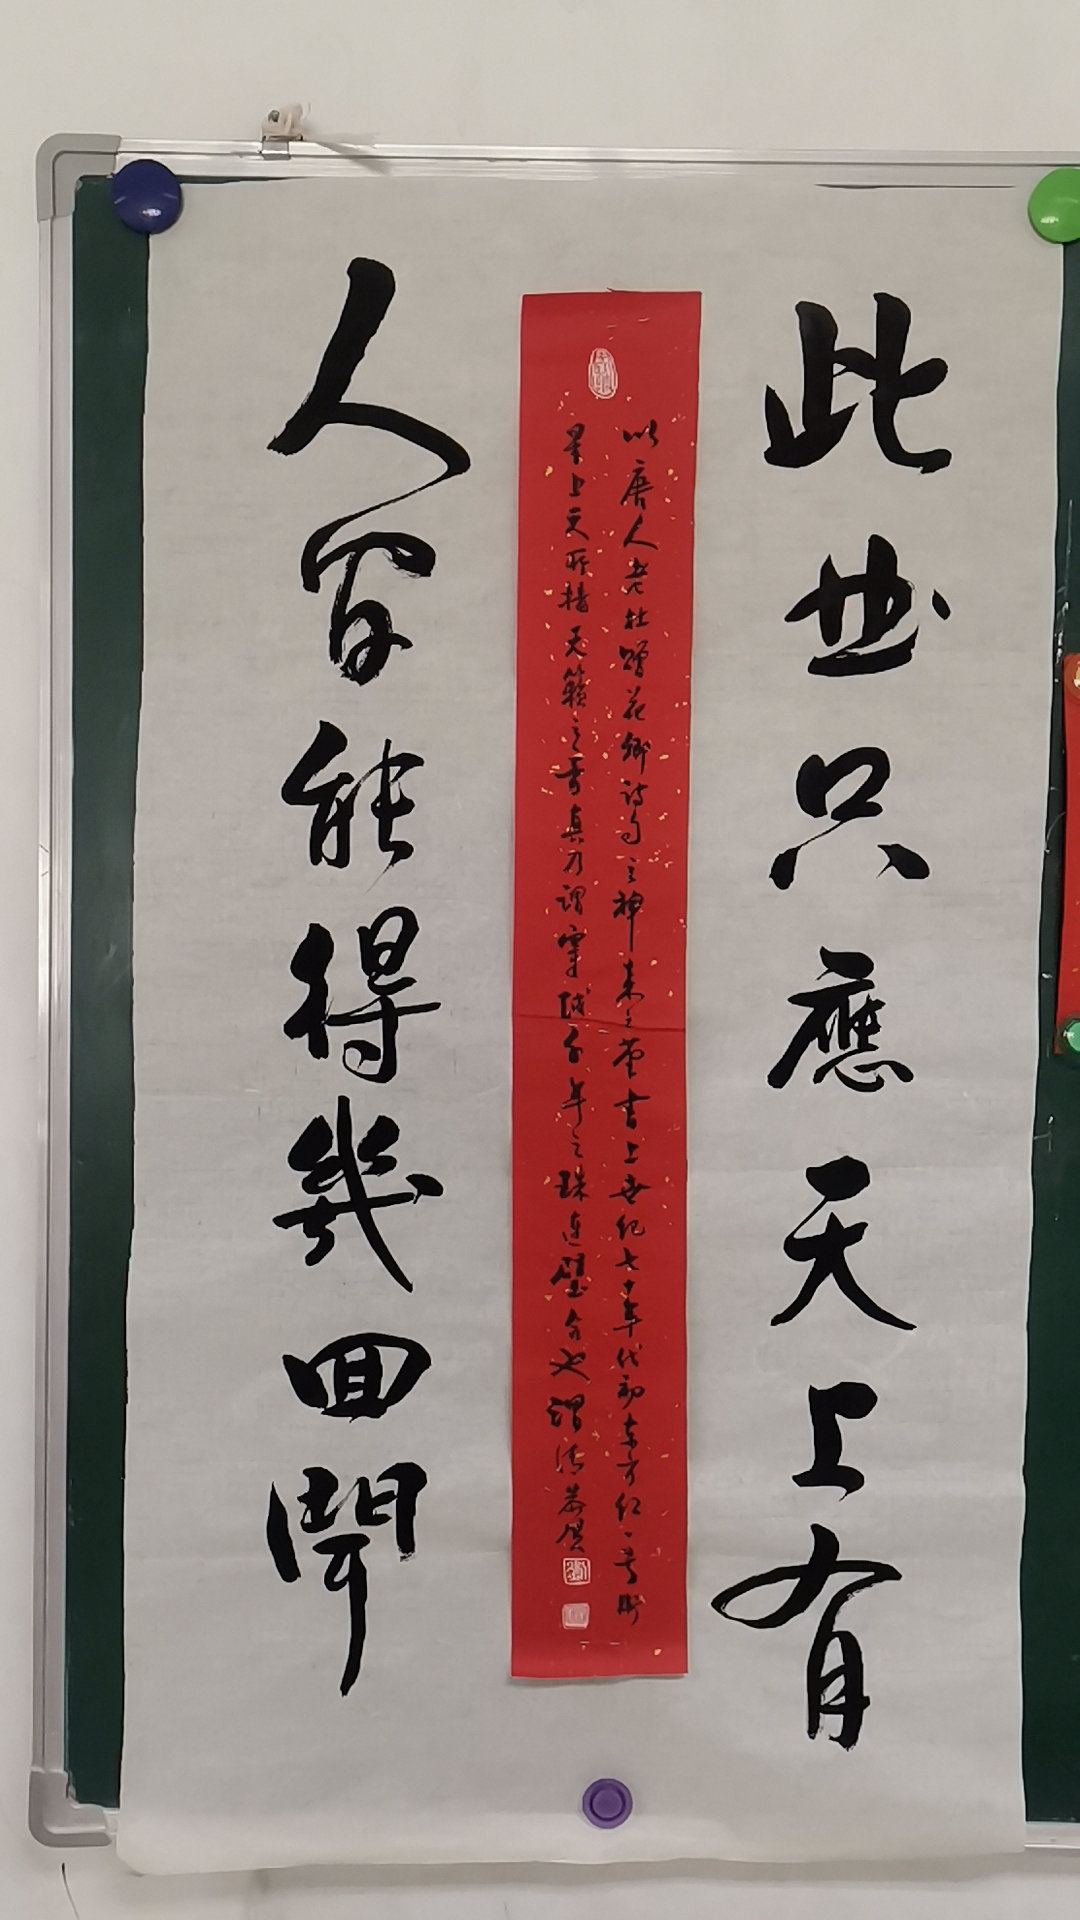 此曲只應天上有
以唐人老杜贈花卿詩句之神来之筆書上世纪七十年代初东方红一号衛
星上天所播天籁之音真乃謂穿越千年之珠连璧合也
人间能得幾回聞